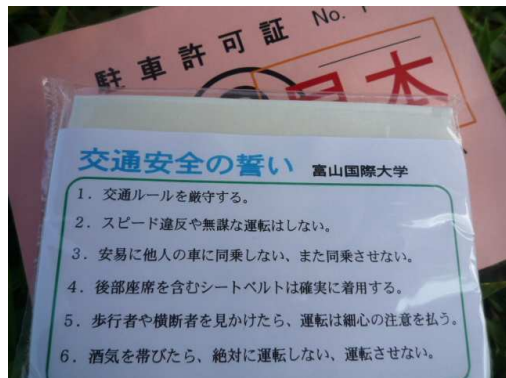 駐車許可証 No.
交通安全の誓い 富山国際大学
1．交通ルールを厳守する。
2．スピード違反や無謀な運転はしない。
3．安易に他人の車に同乗しない、また同乗させない。
4．後部座席を含むシートベルトは確実に着用する。
5．歩行者や横断者を見かけたら、運転は細心の注意を払う。
6．酒気を帯びたら、絶対に運転しない、運転させない。